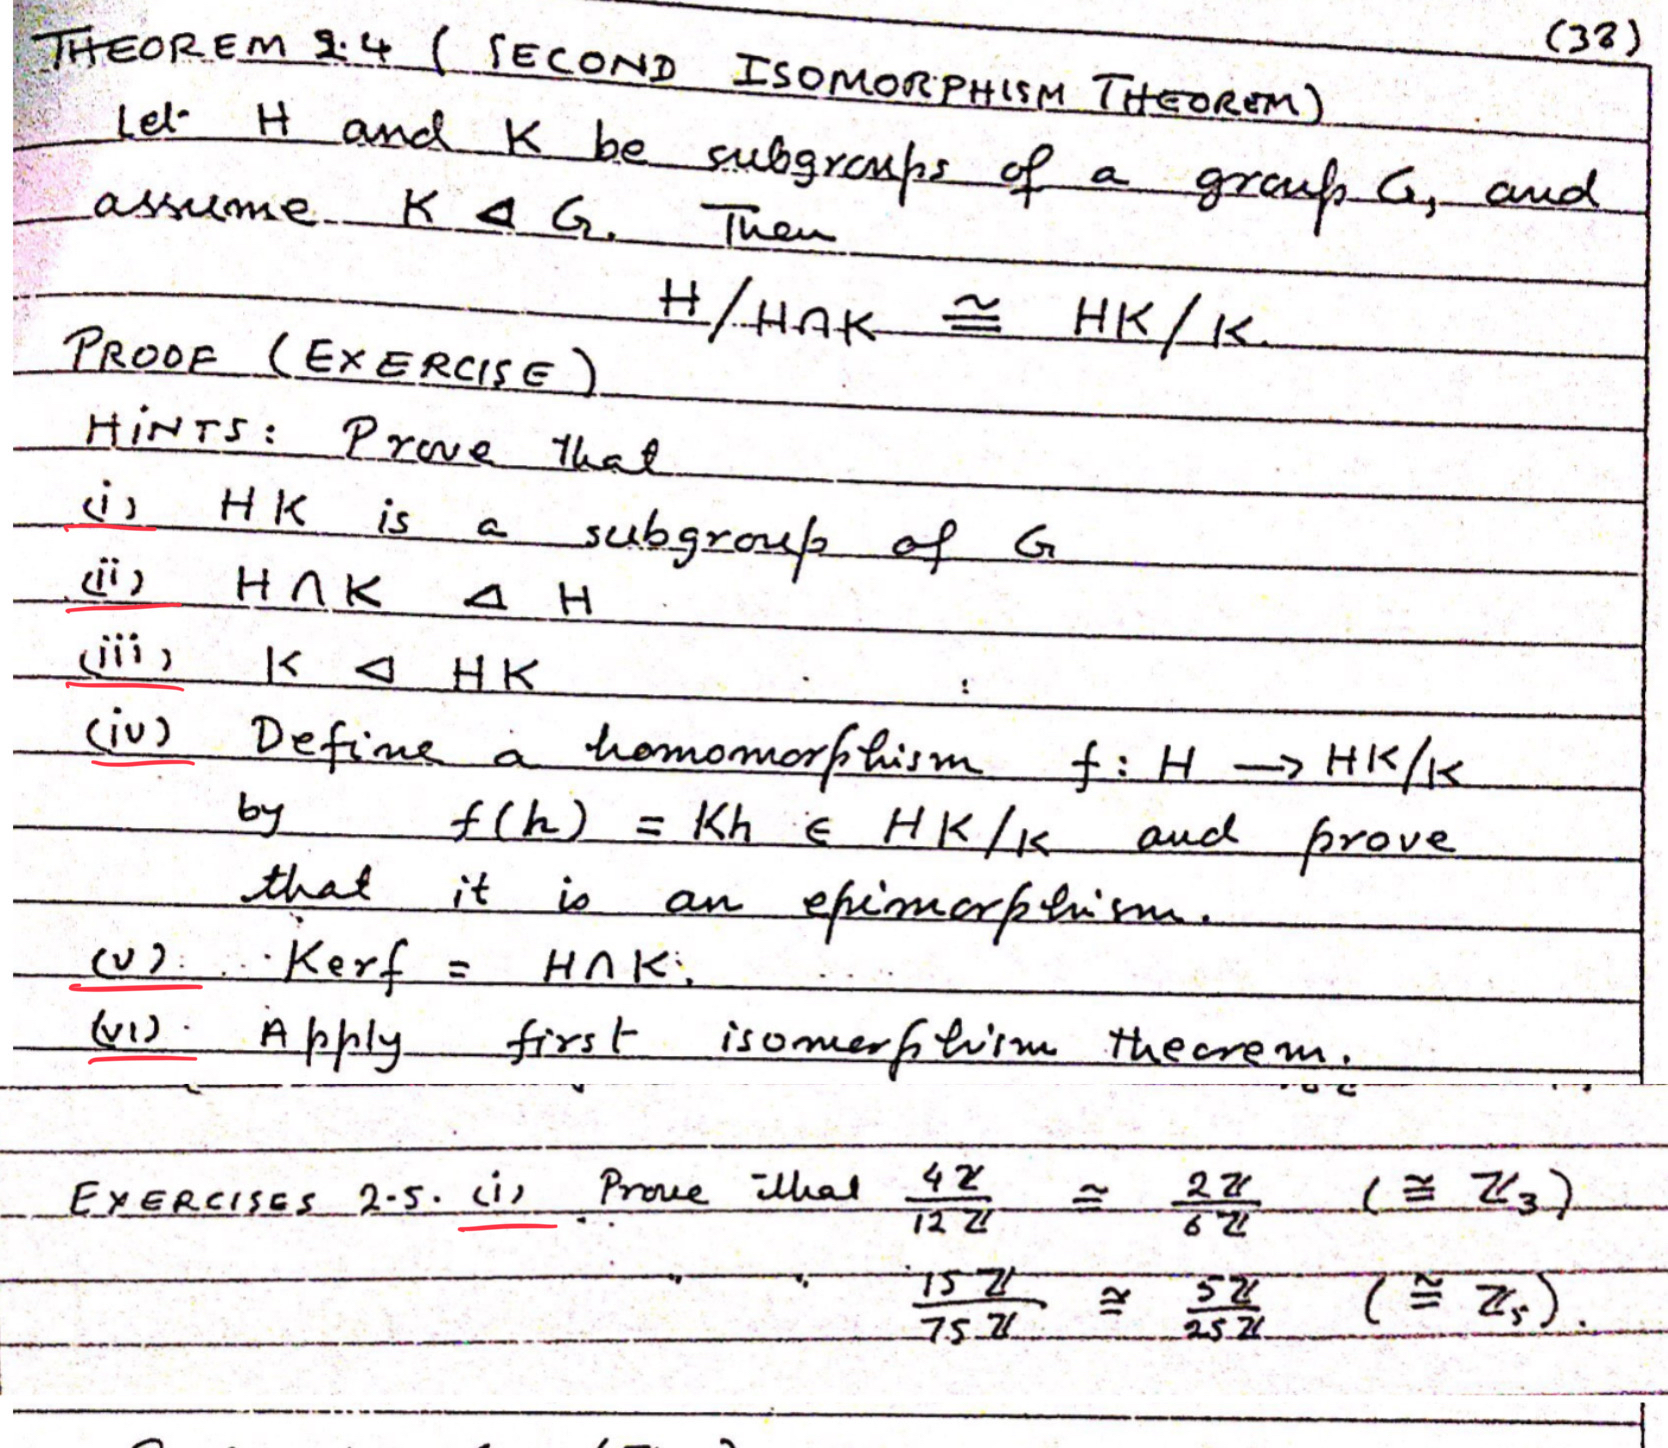 (38)
THEOREM 2.4 ( SECOND ISOMORPHISM THEOREM)
Let H and K be subgroups of a group G, and
assume K ⊲ G. Then
H/H∩K ≅ HK/K.
PROOF (EXERCISE)
HINTS: Prove that
(i) HK is a subgroup of G
(ii) H∩K ⊲ H
(iii) K ⊲ HK
(iv) Define a homomorphism f: H → HK/K
by f(h) = Kh ∈ HK/K and prove
that it is an epimorphism.
(v) Kerf = H∩K.
(vi) Apply first isomorphism theorem.
EXERCISES 2.5. (i) Prove that 4ℤ/12ℤ ≅ 2ℤ/6ℤ (≅ ℤ₃)
" " 15ℤ/75ℤ ≅ 5ℤ/25ℤ (≅ ℤ₅).